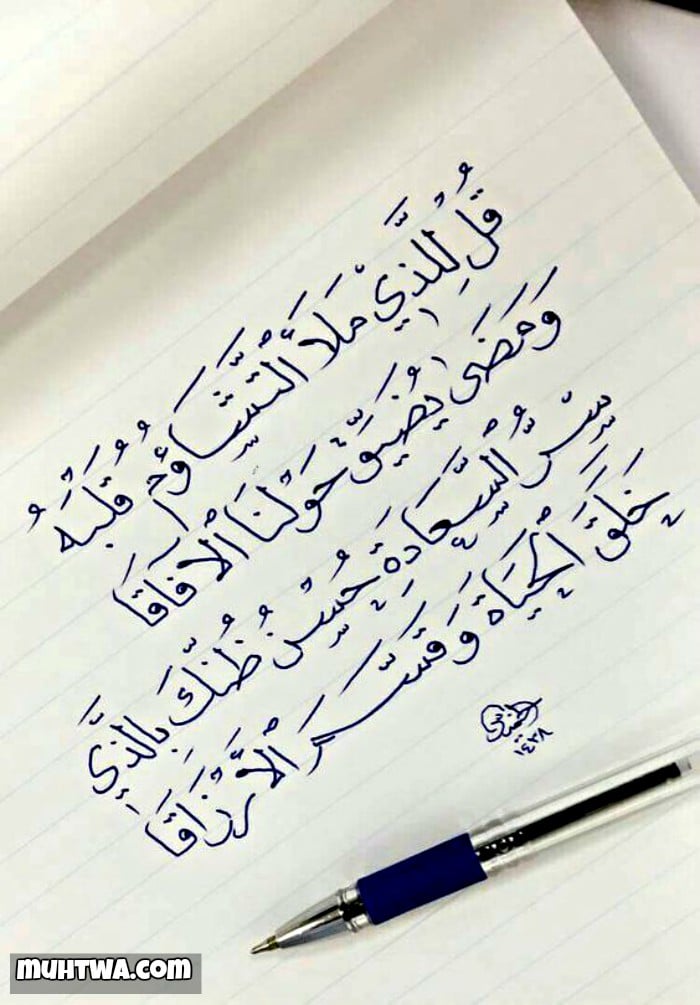 قُلْ لِلَّذِيْ مَلَأَ الْتَّشَاؤُمُ قَلْبَهُ
وَمَضَى يُضَيِّقُ حَوْلَنَا الْآفَاقَا
سِرُّ الْسَّعَادَةِ حُسْنُ ظَنِّكَ بِالَّذِي
خَلَقَ الْحَيَاةَ وَقَسَّمَ الْأَرْزَاقَا
١٤٣٨
MUHTWA.COM